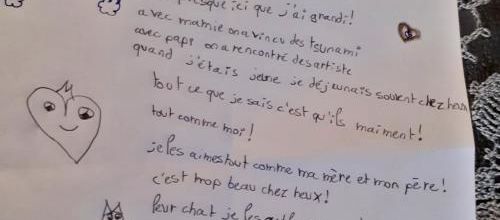 presque ici que j'ai grandi!
avec mamie on a vincu des tsunami
avec papi on a rencontré des artiste
quand j'étais jeune je déjeunais souvent chez heux
tout ce que je sais c'est qu'ils m'aiment!
tout comme moi!
je les aimes tout comme ma mère et mon père!
c'est trop beau chez heux!
leur chat je les